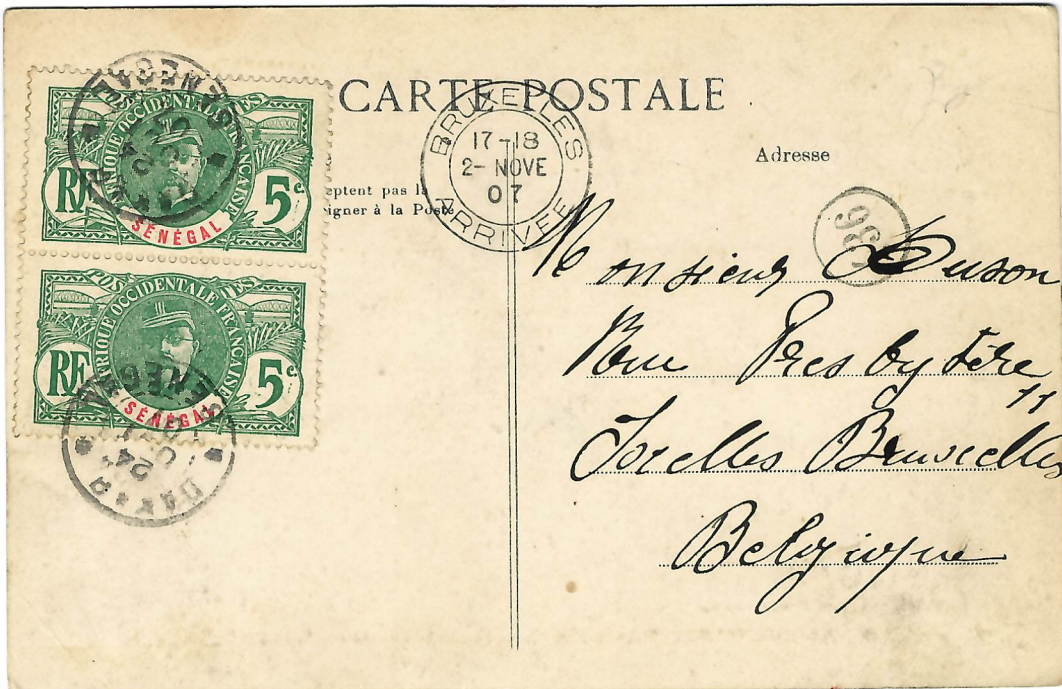 CARTE POSTALE
BRUXELLES
17-18
2- NOVE
07
ARRIVÉE
Adresse
eptent pas la
signer à la Poste
POSTES
AFRIQUE OCCIDENTALE FRANÇAISE
RF
5c
SÉNÉGAL
POSTES
AFRIQUE OCCIDENTALE FRANÇAISE
RF
5c
SÉNÉGAL
SENEGAL
24
DAKAR
Monsieur
Rue Presbytère
11
Ixelles Bruxelles
Belgique